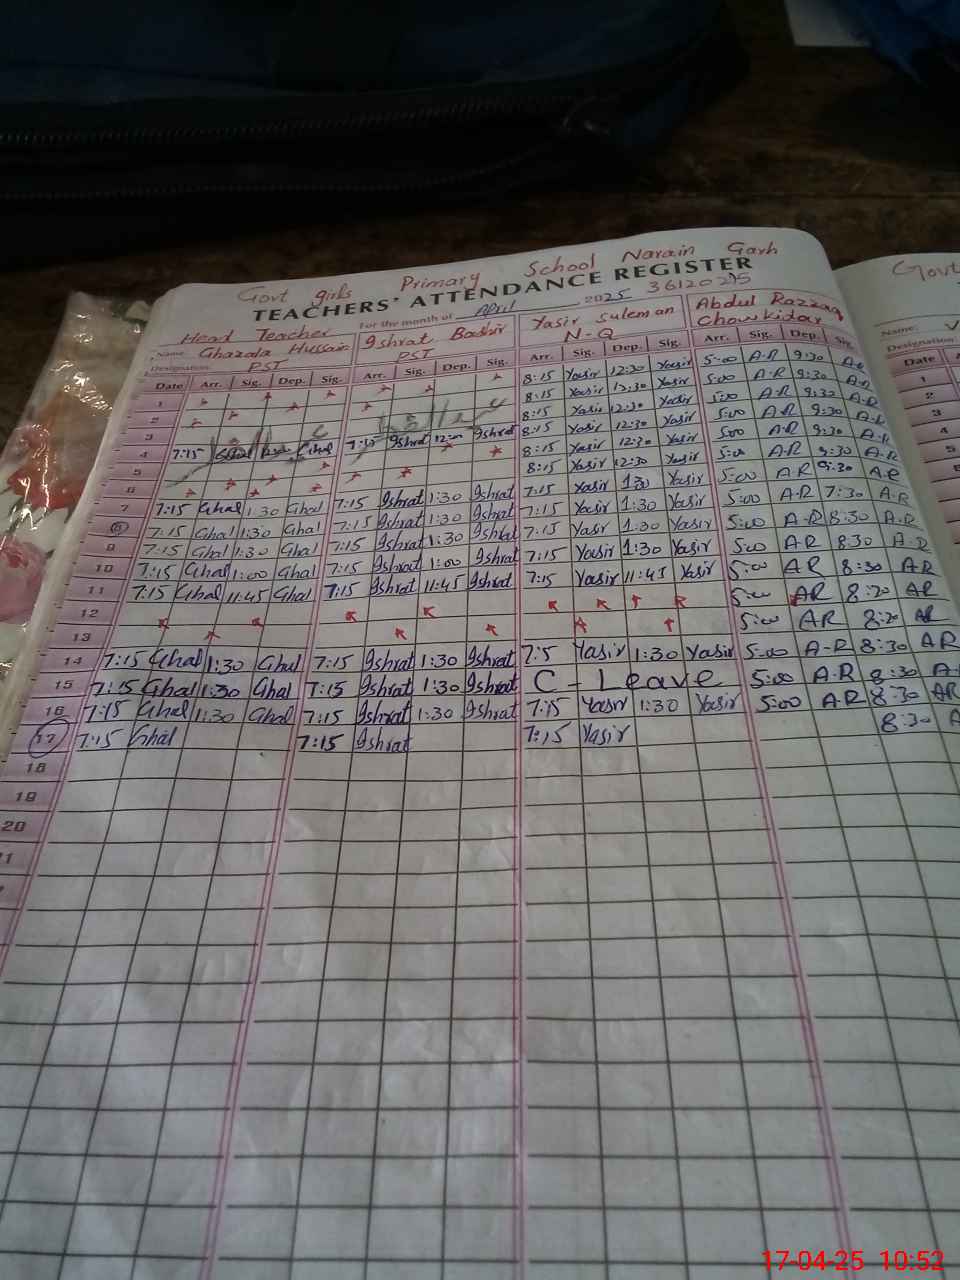 Govt girls Primary School Narain Garh
TEACHERS' ATTENDANCE REGISTER
For the month of April 2025 36120295
Head Teacher
Name Ghazala Hussain Ishrat Bashir Yasir Suleman Abdul Razzaq
Designation PST PST N-Q Chowkidar
Date Arr. Sig. Dep. Sig. Arr. Sig. Dep. Sig. Arr. Sig. Dep. Sig. Arr. Sig. Dep. Sig.
1 8:15 Yasir 12:30 Yasir 5:00 A-R 9:30 A-R
2 8:15 Yasir 12:30 Yasir 5:00 A-R 9:30 A-R
3 8:15 Yasir 12:30 Yasir 5:00 A-R 9:30 A-R
4 7:15 Ghal 7:15 Ishrat 12:00 Ishrat 8:15 Yasir 12:30 Yasir 5:00 A-R 9:30 A-R
5 8:15 Yasir 12:30 Yasir 5:00 A-R 9:30 A-R
6 8:15 Yasir 12:30 Yasir 5:00 A-R 9:30 A-R
7 7:15 Ghal 1:30 Ghal 7:15 Ishrat 1:30 Ishrat 7:15 Yasir 1:30 Yasir 5:00 A-R 7:30 A-R
8 7:15 Ghal 1:30 Ghal 7:15 Ishrat 1:30 Ishrat 7:15 Yasir 1:30 Yasir 5:00 A-R 8:30 A-R
9 7:15 Ghal 1:30 Ghal 7:15 Ishrat 1:30 Ishrat 7:15 Yasir 1:30 Yasir 5:00 A-R 8:30 A-R
10 7:15 Ghal 1:00 Ghal 7:15 Ishrat 1:00 Ishrat 7:15 Yasir 1:30 Yasir 5:00 AR 8:30 AR
11 7:15 Ghal 11:45 Ghal 7:15 Ishrat 11:45 Ishrat 7:15 Yasir 11:45 Yasir 5:00 AR 8:20 AR
12 5:00 AR 8:20 AR
13
14 7:15 Ghal 1:30 Ghal 7:15 Ishrat 1:30 Ishrat 7:5 Yasir 1:30 Yasir 5:00 A-R 8:30 AR
15 7:15 Ghal 1:30 Ghal 7:15 Ishrat 1:30 Ishrat C - Leave 5:00 A-R 8:30 A
16 7:15 Ghal 1:30 Ghal 7:15 Ishrat 1:30 Ishrat 7:15 Yasir 1:30 Yasir 5:00 A.R 8:30 AR
17 7:15 Ghal 7:15 Ishrat 7:15 Yasir 8:30 A
18
19
20
Govt
Name:
Designation
Date
1
2
3
4
5
6
17-04-25 10:52